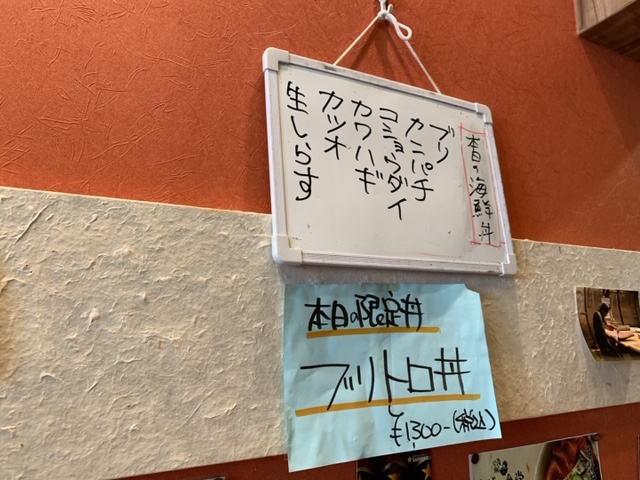 本日の海鮮丼
ブリ
カンパチ
コショウダイ
カワハギ
カツオ
生しらす
本日の限定丼
ブリトロ丼
¥1,300-(税込)